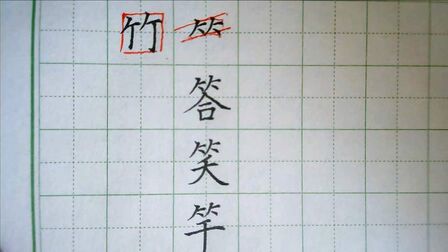 竹 ⺮
答
笑
竿